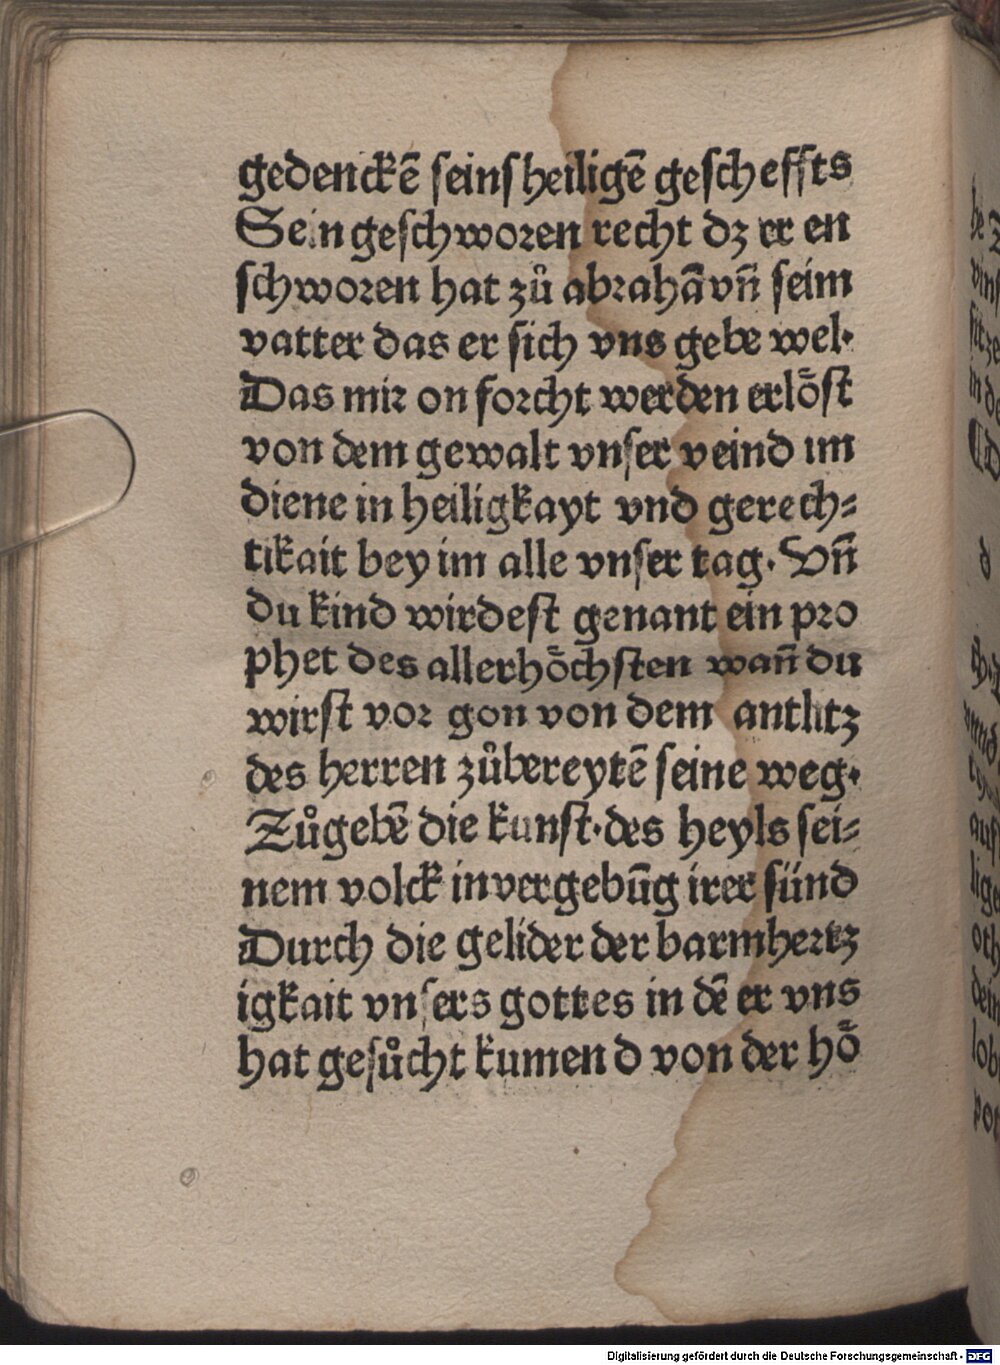 gedenckē seins heiligē gescheffts
Sein geschworen recht dz er en
schworen hat zů abrahā vn̄ seim
vatter das er sich vns gebe wel·
Das mir on forcht werden erlöst
von dem gewalt vnser veind im
diene in heiligkayt vnd gerech=
tikait bey im alle vnser tag. Vn̄
du kind wirdest genant ein pro
phet des allerhöchsten wan̄ du
wirst vor gon von dem antlitz
des herren zůbereytē seine weg·
Zůgebē die kunst·des heyls sei=
nem volck in vergebūg irer sünd
Durch die gelider der barmhertz
igkait vnsers gottes in dē er vns
hat gesůcht kumend von der hö
Digitalisierung gefördert durch die Deutsche Forschungsgemeinschaft - DFG